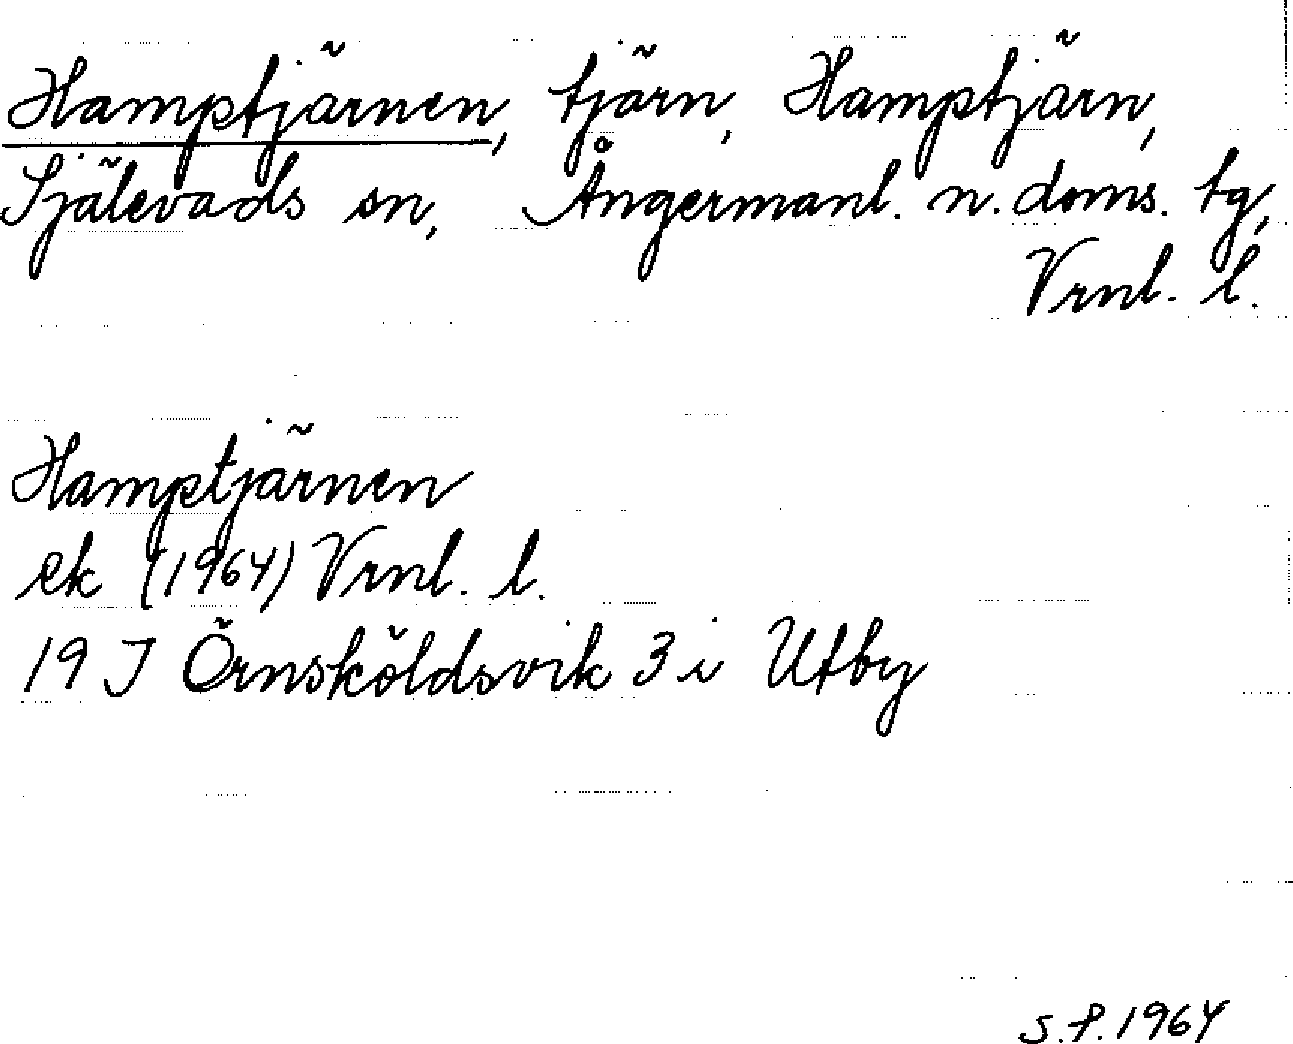 Hamptjärnen, tjärn, Hamptjärn,
Själevads sn, Ångermanl. n. doms. tg,
Vrnl. l.
Hamptjärnen
ek (1964) Vrnl. l.
19 J Örnsköldsvik 3 i Utby
S.P. 1964